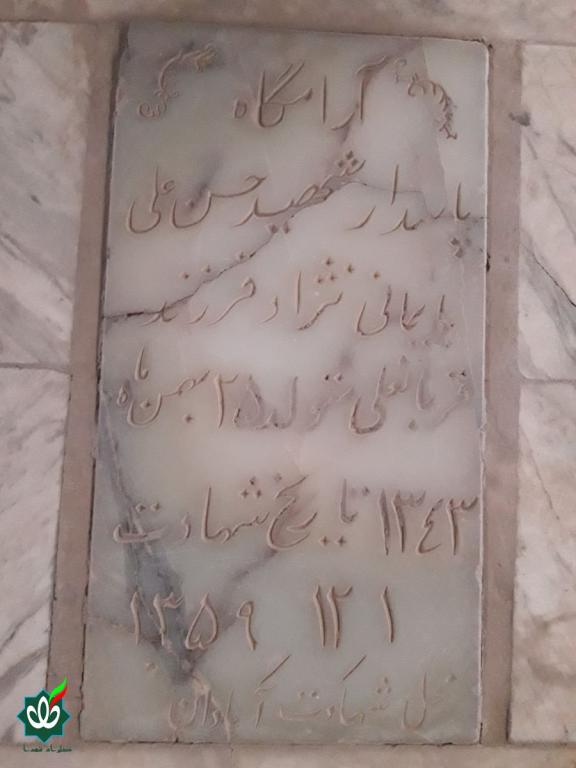 آرامگاه
پاسدار شهید حسن علی
نژاد فرزند
قربانعلی متولد ۲۵ بهمن ماه
۱۳۴۳ تاریخ شهادت
۱ ۱۲ ۱۳۵۹
محل شهادت آبادان